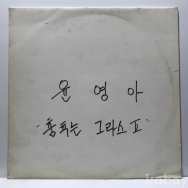 윤영아
"춤추는 그라스 II"